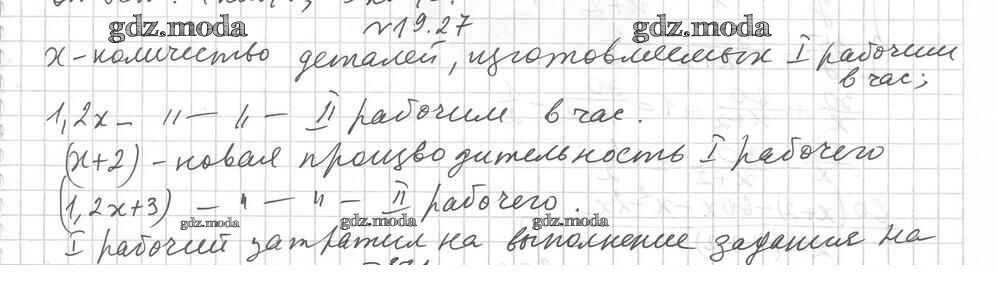 gdz.moda gdz.moda
№19.27
х-количество деталей, изготовляемых I рабочим
в час;
1,2х- "—"— II рабочим в час.
(х+2) - новая производительность I рабочего
(1,2х+3) —"—"— II рабочего.
gdz.moda gdz.moda gdz.moda
I рабочий затратил на выполнение задания на